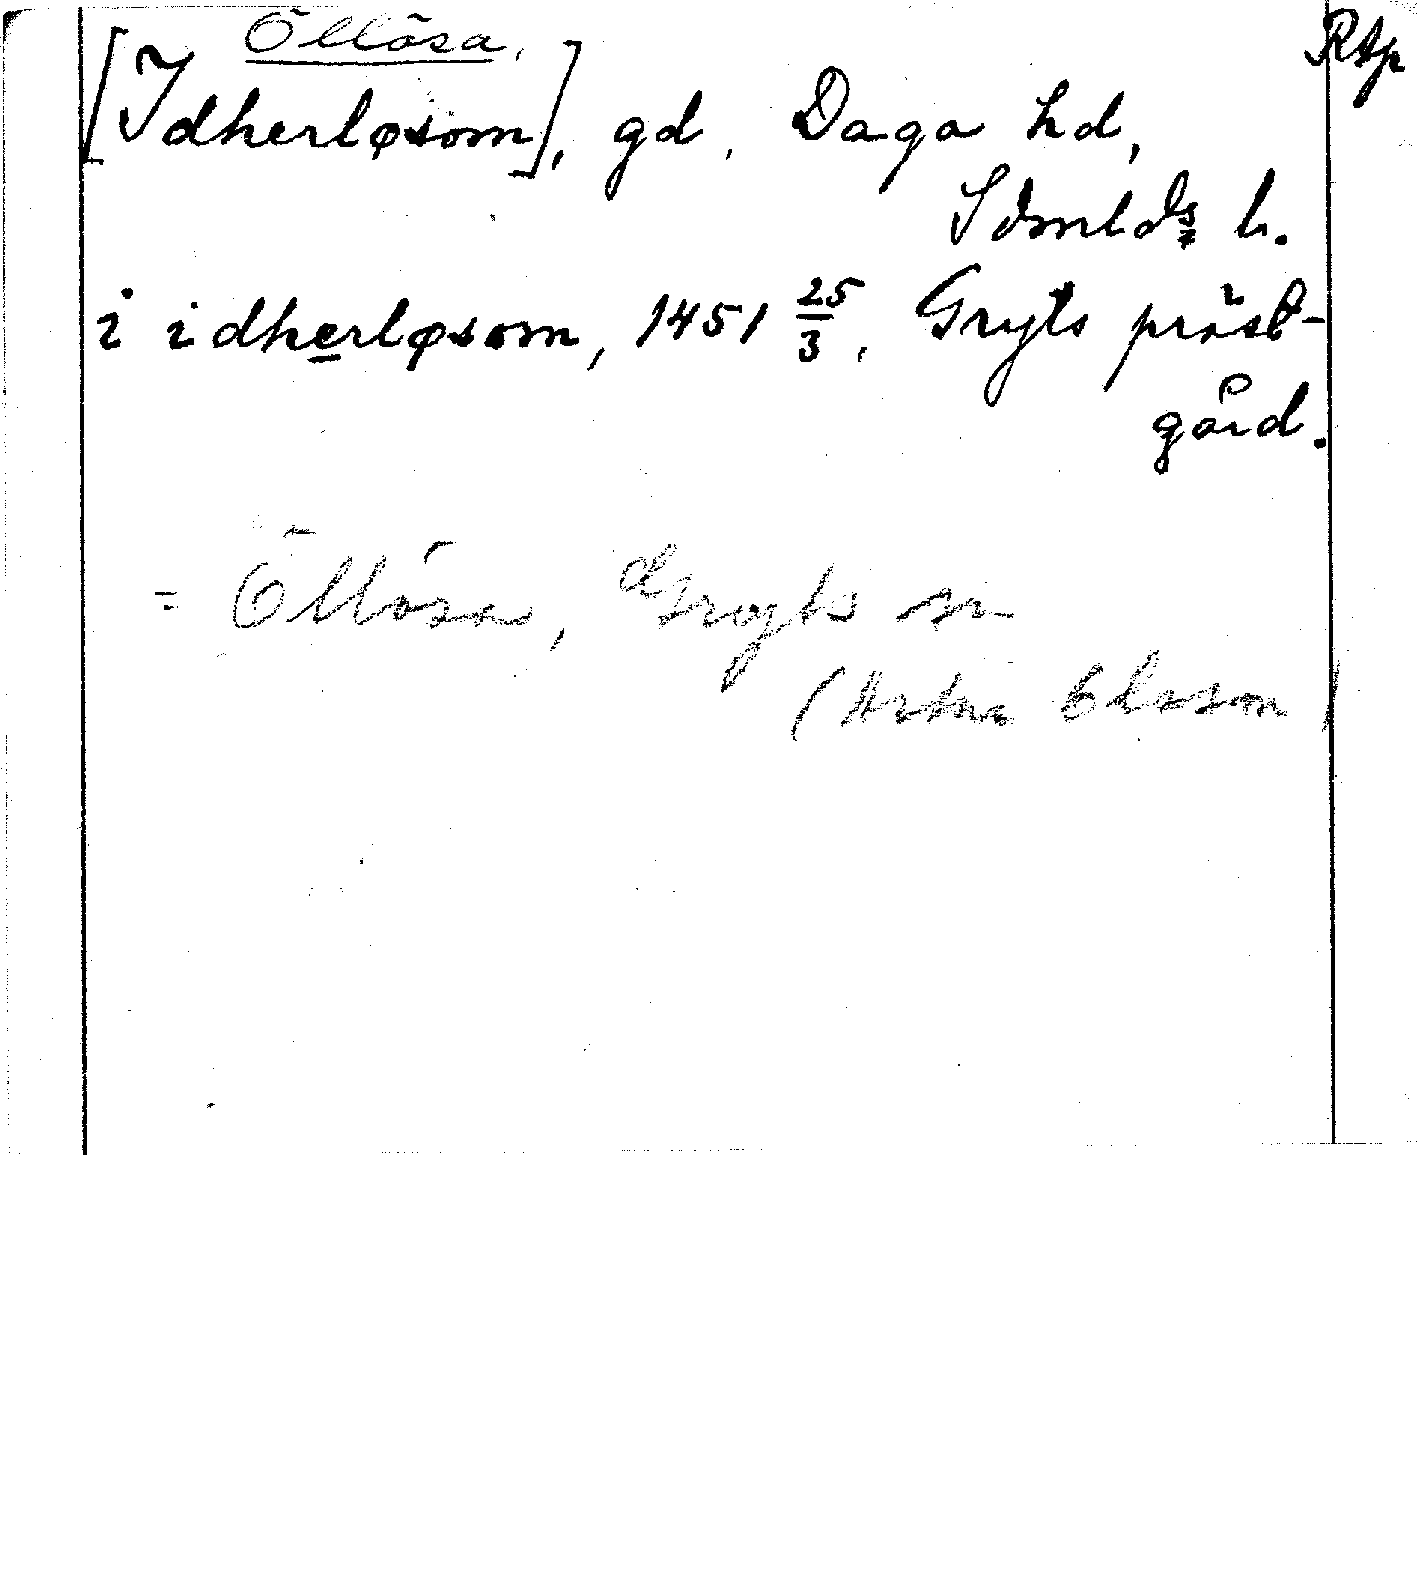 Öllösa,
Rtp
[Idherløsom], gd, Daga hd,
Sdmlds l.
i idherløsom, 1451 25/3, Gryts präst-
gård.
= Öllösa, Gryts sn
(Artur Olsson)